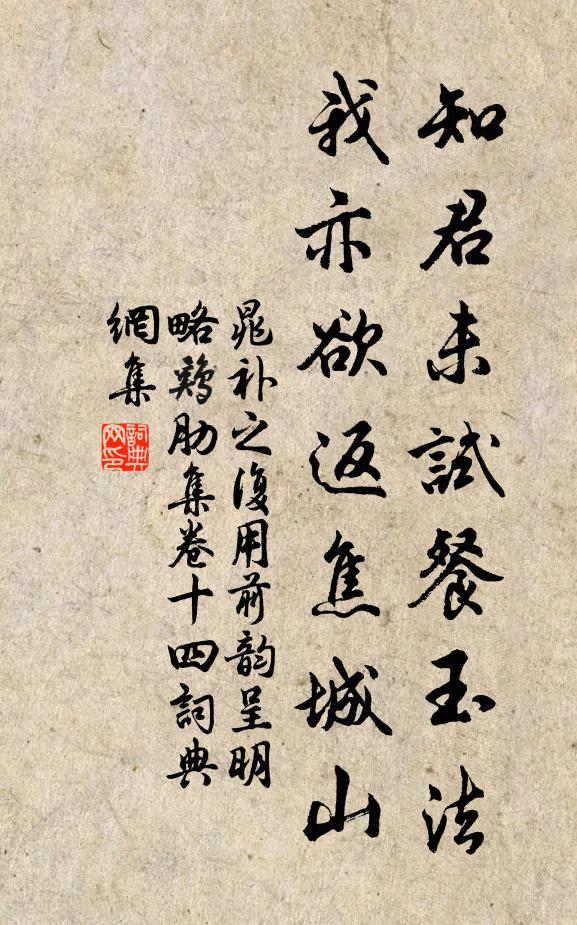 知君未試餐玉法
我亦欲返焦城山
晁补之復用前韵呈明
略鷄肋集卷十四詞典
網集
詞典网印